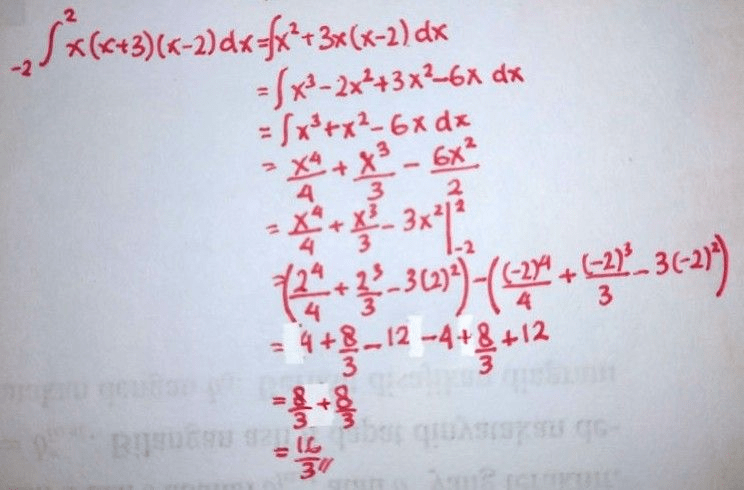 ₋₂∫² x(x+3)(x-2) dx = ∫x² + 3x(x-2) dx
= ∫x³ - 2x² + 3x² - 6x dx
= ∫x³ + x² - 6x dx
= x⁴/4 + x³/3 - 6x²/2
= x⁴/4 + x³/3 - 3x² |²₋₂
= (2⁴/4 + 2³/3 - 3(2)²) - ((-2)⁴/4 + (-2)³/3 - 3(-2)²)
= 4 + 8/3 - 12 - 4 + 8/3 + 12
= 8/3 + 8/3
= 16/3 //